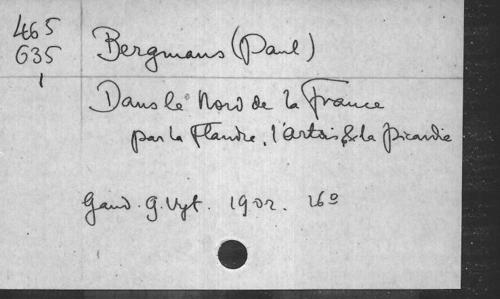 465
G35
1
Bergmans (Paul)
Dans le Nord de la France
par la Flandre, l'Artois & la Picardie
Gand. G. Vyt. 1902. 16°